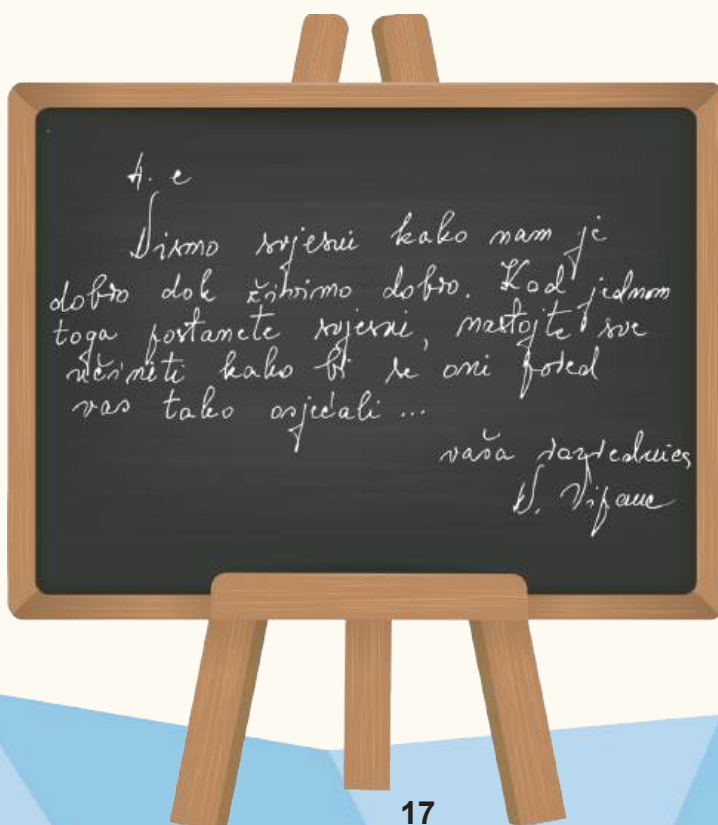 4. c
Nismo svjesni kako nam je
dobro dok živimo dobro. Kad jednom
toga postanete svjesni, nastojte sve
učiniti kako bi se oni pored
vas tako osjećali ...
vaša razrednica
N. Vipauc
17